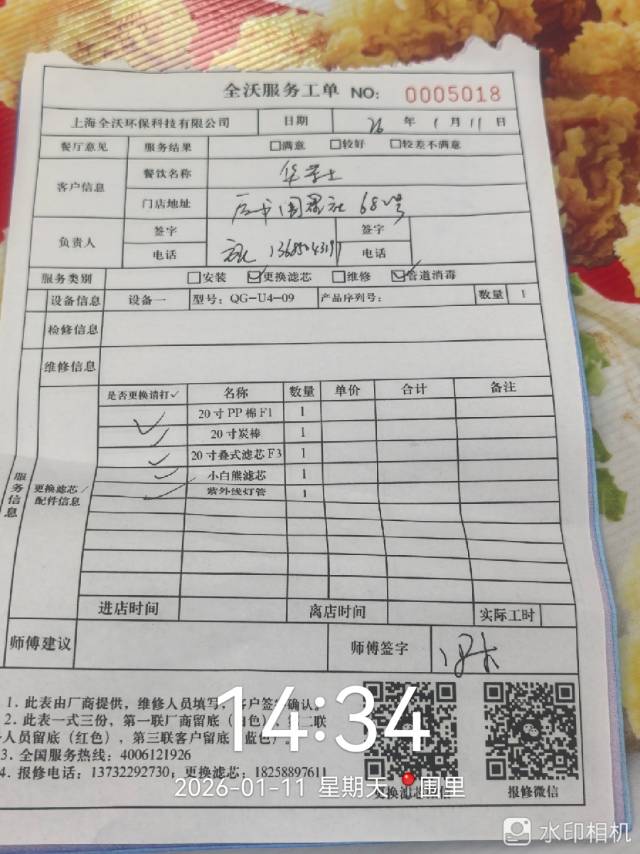 全沃服务工单 NO: 0005018
上海全沃环保科技有限公司 日期 26 年 1 月 11 日
餐厅意见 服务结果 □满意 □较好 □较差不满意
客户信息 餐饮名称 华莱士
门店地址 68号
负责人 签字 签字
电话 电话
服务类别 □安装 ☑更换滤芯 □维修 ☑管道消毒
设备信息 设备一 型号: QG-U4-09 产品序列号: 数量 1
检修信息
维修信息
服务信息
更换滤芯/配件信息
是否更换请打✓ 名称 数量 单价 合计 备注
✓ 20寸PP棉F1 1
✓ 20寸炭棒 1
✓ 20寸叠式滤芯F3 1
✓ 小白熊滤芯 1
✓ 紫外线灯管 1
进店时间 离店时间 实际工时
师傅建议 师傅签字
1. 此表由厂商提供，维修人员填写，客户签字确认。
2. 此表一式三份，第一联厂商留底（白色），第二联
人员留底（红色），第三联客户留底（蓝色）。
3. 全国服务热线: 4006121926
4. 报修电话: 13732292730, 更换滤芯: 18258897611
更换滤芯微信 报修微信
14:34
2026-01-11 星期天 围里
水印相机